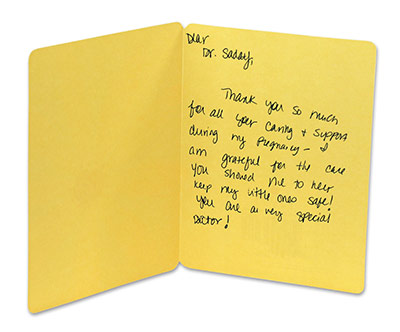 Dear
Dr. Saday,
Thank you so much
for all your caring & support
during my pregnancy - I
am grateful for the care
you should me to help
keep my little ones safe!
You are a very special
Doctor!